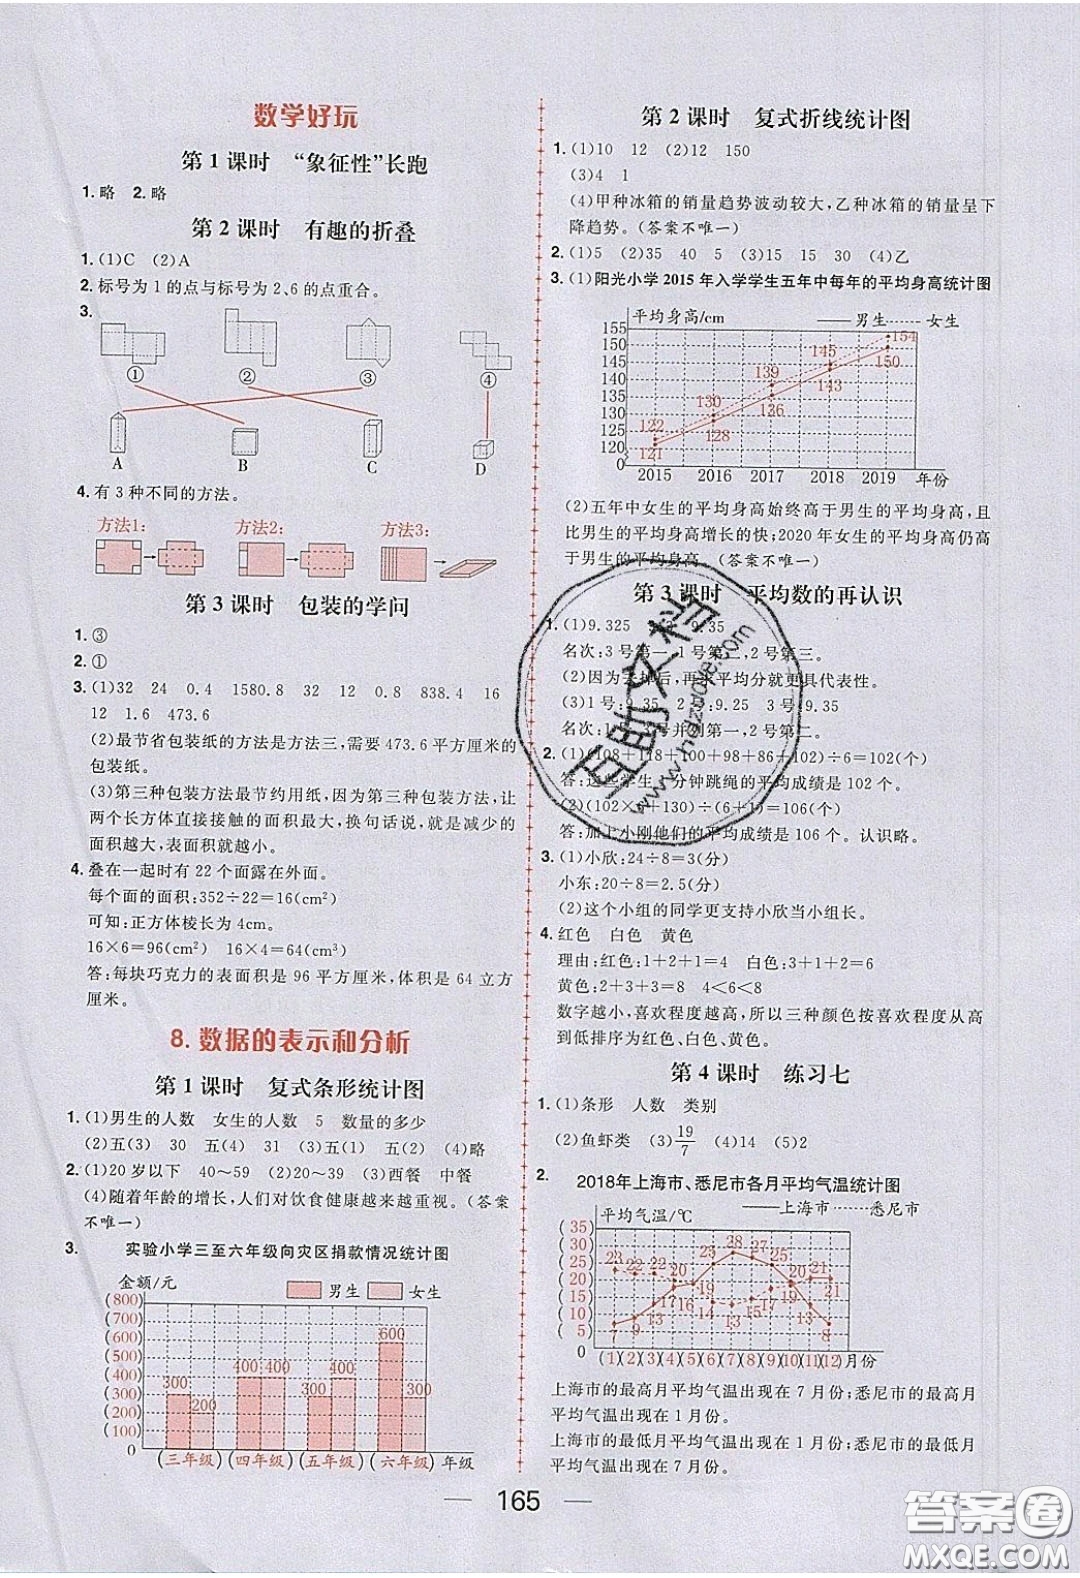 数学好玩
第1课时 “象征性”长跑
1.略 2.略
第2课时 有趣的折叠
1.(1)C (2)A
2.标号为1的点与标号为2、6的点重合。
3.
① ② ③ ④
A B C D
4.有3种不同的方法。
方法1: 方法2: 方法3:
第3课时 包装的学问
1.③
2.①
3.(1)32 24 0.4 1580.8 32 16 0.8 838.4 16
12 1.6 473.6
(2)最节省包装纸的方法是方法三,需要473.6平方厘米的
包装纸。
(3)第三种包装方法最节约用纸,因为第三种包装方法,让
两个长方体直接接触的面积最大,换句话说,就是减少的
面积越大,表面积就越小。
4.叠在一起时有22个面露在外面。
每个面的面积:352÷22=16(cm²)
可知:正方体棱长为4cm。
16×6=96(cm²) 16×4=64(cm³)
答:每块巧克力的表面积是96平方厘米,体积是64立方
厘米。
8.数据的表示和分析
第1课时 复式条形统计图
1.(1)男生的人数 女生的人数 5 数量的多少
(2)五(3) 30 五(4) 31 (3)五(1) 五(2) (4)略
2.(1)20岁以下 40~59 (2)20~39 (3)西餐 中餐
(4)随着年龄的增长,人们对饮食健康越来越重视。(答案
不唯一)
3. 实验小学三至六年级向灾区捐款情况统计图
金额/元 男生 女生
(800)
(700)
(600)
(500)
(400)
(300)
(200)
(100)
0
300 200 400 400 300 400 600 300
(三年级) (四年级) (五年级) (六年级) 年级
第2课时 复式折线统计图
1.(1)10 12 (2)12 150
(3)4 1
(4)甲种冰箱的销量趋势波动较大,乙种冰箱的销量呈下
降趋势。(答案不唯一)
2.(1)5 (2)35 20 (3)15 30 (4)乙
3.(1)阳光小学2015年入学学生五年中每年的平均身高统计图
平均身高/cm 男生 女生
155
150
145
140
135
130
125
120
0
122 121 130 128 139 136 145 143 154 150
2015 2016 2017 2018 2019 年份
(2)五年中女生的平均身高始终高于男生的平均身高,且
比男生的平均身高增长的快;2020年女生的平均身高仍高
于男生的平均身高。(答案不唯一)
第3课时 平均数的再认识
1.(1)9.325 9.3 9.35
名次:3号第一,1号第二,2号第三。
(2)因为去掉后,再求平均分就更具代表性。
(3)1号:9.35 2号:9.25 3号:9.35
名次:1号、3号并列第一,2号第二。
2.(1)(108+118+100+98+86+102)÷6=102(个)
答:这些学生1分钟跳绳的平均成绩是102个。
(2)(102×6+130)÷(6+1)=106(个)
答:加上小刚他们的平均成绩是106个。认识略。
3.(1)小欣:24÷8=3(分)
小东:20÷8=2.5(分)
(2)这个小组的同学更支持小欣当小组长。
4.红色 白色 黄色
理由:红色:1+2+1=4 白色:3+1+2=6
黄色:2+3+3=8 4<6<8
数字越小,喜欢程度越高,所以三种颜色按喜欢程度从高
到低排序为红色、白色、黄色。
第4课时 练习七
1.(1)条形 人数 类别
(2)鱼虾类 (3)19/7 (4)14 (5)2
2. 2018年上海市、悉尼市各月平均气温统计图
平均气温/℃ 上海市 悉尼市
(35)
(30)
(25)
(20)
(15)
(10)
(5)
0
23 22 22 20 19 25 28 27 25 20 21 21
7 9 13 17 16 14 13 15 17 19 13 8
(1)(2)(3)(4)(5)(6)(7)(8)(9)(10)(11)(12)月份
上海市的最高月平均气温出现在7月份;悉尼市的最高月
平均气温出现在1月份。
上海市的最低月平均气温出现在1月份;悉尼市的最低月
平均气温出现在7月份。
165
互助文档
www.hgizdoye.com
答案圈
MXQE.COM